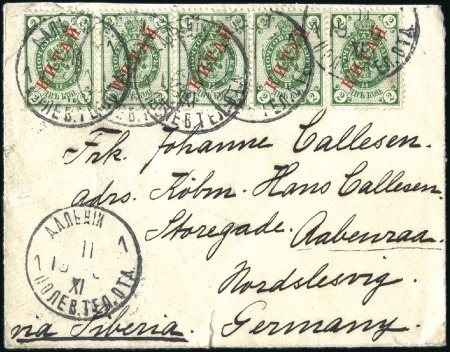 КИТАЙ КИТАЙ КИТАЙ КИТАЙ КИТАЙ
2 ДВѢ КОП. 2
Frk. Johanne Callesen.
adrs. Købm. Hans Callesen.
Storegade. Aabenraa.
Nordslesvig.
Germany.
via Siberia.
ДАЛЬНІЙ
11
XI
ПОЛЕВ.ТЕЛ.ОТД.